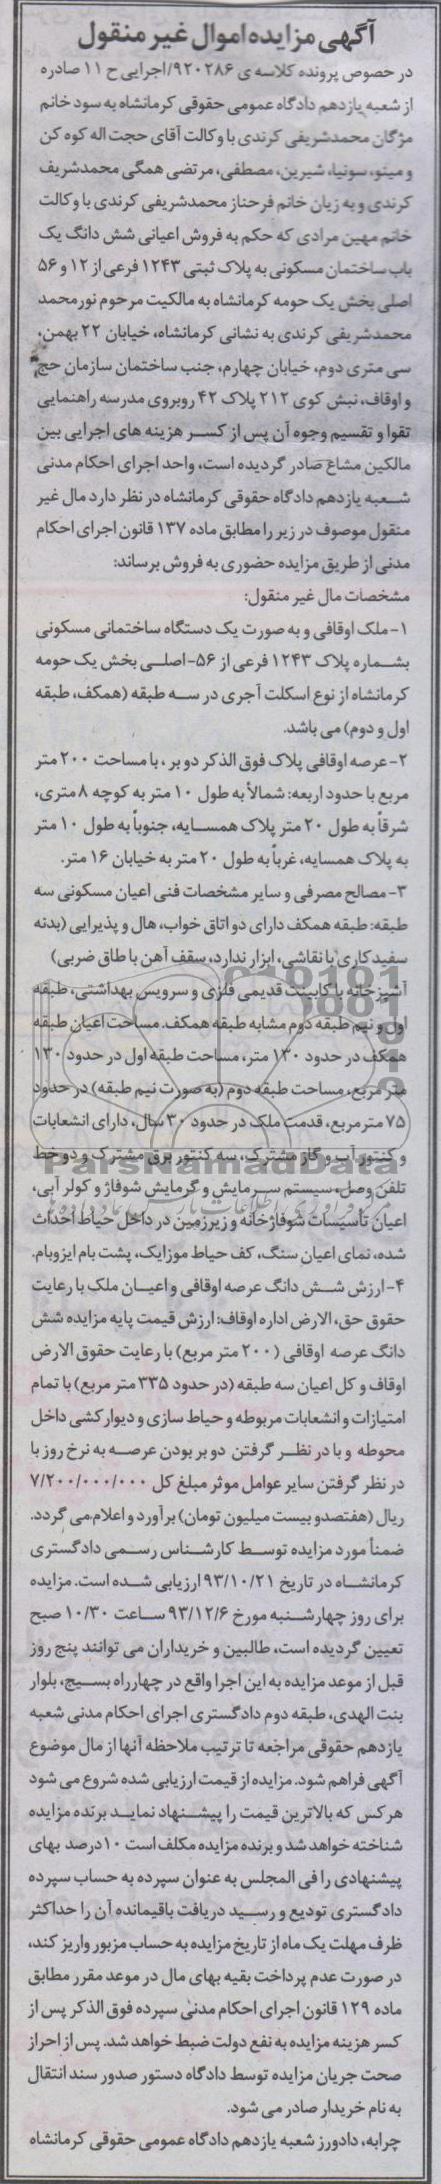 آگهی مزایده اموال غیر منقول
در خصوص پرونده کلاسه ی ۹۲۰۲۸۶/اجرایی ح ۱۱ صادره
از شعبه یازدهم دادگاه عمومی حقوقی کرمانشاه به سود خانم
مژگان محمدشریفی کرندی با وکالت آقای حجت اله کوه کن
و مینو، سونیا، شیرین، مصطفی، مرتضی همگی محمدشریف
کرندی و به زیان خانم فرحناز محمدشریفی کرندی با وکالت
خانم مهین مرادی که حکم به فروش اعیانی شش دانگ یک
باب ساختمان مسکونی به پلاک ثبتی ۱۲۴۳ فرعی از ۱۲ و ۵۶
اصلی بخش یک حومه کرمانشاه به مالکیت مرحوم نورمحمد
محمدشریفی کرندی به نشانی کرمانشاه، خیابان ۲۲ بهمن،
سی متری دوم، خیابان چهارم، جنب ساختمان سازمان حج
و اوقاف، نبش کوی ۲۱۲ پلاک ۴۲ روبروی مدرسه راهنمایی
تقوا و تقسیم وجوه آن پس از کسر هزینه های اجرایی بین
مالکین مشاع صادر گردیده است، واحد اجرای احکام مدنی
شعبه یازدهم دادگاه حقوقی کرمانشاه در نظر دارد مال غیر
منقول موصوف در زیر را مطابق ماده ۱۳۷ قانون اجرای احکام
مدنی از طریق مزایده حضوری به فروش برساند:
مشخصات مال غیر منقول:
۱- ملک اوقافی و به صورت یک دستگاه ساختمانی مسکونی
بشماره پلاک ۱۲۴۳ فرعی از ۵۶-اصلی بخش یک حومه
کرمانشاه از نوع اسکلت آجری در سه طبقه (همکف، طبقه
اول و دوم) می باشد.
۲- عرصه اوقافی پلاک فوق الذکر دو بر ، با مساحت ۲۰۰ متر
مربع با حدود اربعه: شمالاً به طول ۱۰ متر به کوچه ۸ متری،
شرقاً به طول ۲۰ متر پلاک همسایه، جنوباً به طول ۱۰ متر
به پلاک همسایه، غرباً به طول ۲۰ متر به خیابان ۱۶ متر.
۳- مصالح مصرفی و سایر مشخصات فنی اعیان مسکونی سه
طبقه: طبقه همکف دارای دو اتاق خواب، هال و پذیرایی (بدنه
سفید کاری با نقاشی، ابزار ندارد، سقف آهن با طاق ضربی)
آشپزخانه با کابینت قدیمی فلزی و سرویس بهداشتی، طبقه
اول و نیم طبقه دوم مشابه طبقه همکف. مساحت اعیان طبقه
همکف در حدود ۱۳۰ متر، مساحت طبقه اول در حدود ۱۳۰
متر مربع، مساحت طبقه دوم (به صورت نیم طبقه) در حدود
۷۵ متر مربع، قدمت ملک در حدود ۳۰ سال، دارای انشعابات
و کنتور آب و گاز مشترک، سه کنتور برق مشترک و دو خط
تلفن وصل، سیستم سرمایش و گرمایش شوفاژ و کولر آبی،
اعیان تأسیسات شوفاژخانه و زیرزمین در داخل حیاط احداث
شده، نمای اعیان سنگ، کف حیاط موزایک، پشت بام ایزوبام.
۴- ارزش شش دانگ عرصه اوقافی و اعیان ملک با رعایت
حقوق حق، الارض اداره اوقاف: ارزش قیمت پایه مزایده شش
دانگ عرصه اوقافی (۲۰۰ متر مربع) با رعایت حقوق الارض
اوقاف و کل اعیان سه طبقه (در حدود ۳۳۵ متر مربع) با تمام
امتیازات و انشعابات مربوطه و حیاط سازی و دیوار کشی داخل
محوطه و با در نظر گرفتن دو بر بودن عرصه به نرخ روز با
در نظر گرفتن سایر عوامل موثر مبلغ کل ۷/۲۰۰/۰۰۰/۰۰۰
ریال (هفتصدو بیست میلیون تومان) برآورد و اعلام می گردد.
ضمناً مورد مزایده توسط کارشناس رسمی دادگستری
کرمانشاه در تاریخ ۹۳/۱۰/۲۱ ارزیابی شده است. مزایده
برای روز چهارشنبه مورخ ۹۳/۱۲/۶ ساعت ۱۰/۳۰ صبح
تعیین گردیده است، طالبین و خریداران می توانند پنج روز
قبل از موعد مزایده به این اجرا واقع در چهارراه بسیج، بلوار
بنت الهدی، طبقه دوم دادگستری اجرای احکام مدنی شعبه
یازدهم حقوقی مراجعه تا ترتیب ملاحظه آنها از مال موضوع
آگهی فراهم شود. مزایده از قیمت ارزیابی شده شروع می شود
هرکس که بالاترین قیمت را پیشنهاد نماید برنده مزایده
شناخته خواهد شد و برنده مزایده مکلف است ۱۰ درصد بهای
پیشنهادی را فی المجلس به عنوان سپرده به حساب سپرده
دادگستری تودیع و رسید دریافت باقیمانده آن را حداکثر
ظرف مهلت یک ماه از تاریخ مزایده به حساب مزبور واریز کند،
در صورت عدم پرداخت بقیه بهای مال در موعد مقرر مطابق
ماده ۱۲۹ قانون اجرای احکام مدنی سپرده فوق الذکر پس از
کسر هزینه مزایده به نفع دولت ضبط خواهد شد. پس از احراز
صحت جریان مزایده توسط دادگاه دستور صدور سند انتقال
به نام خریدار صادر می شود.
چرابه، دادورز شعبه یازدهم دادگاه عمومی حقوقی کرمانشاه
ParsNamadData